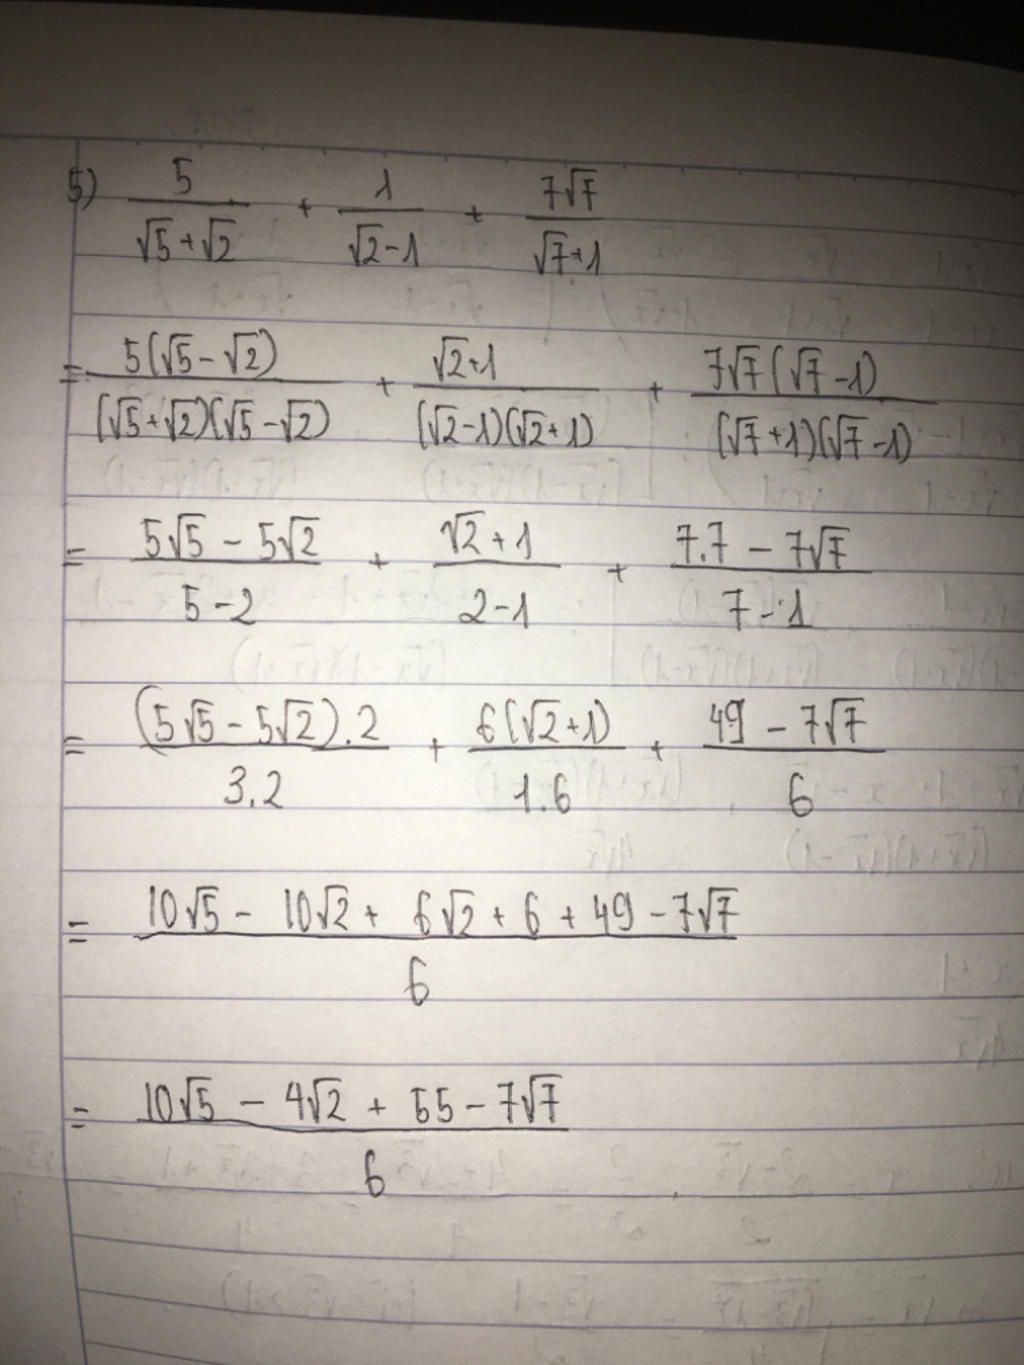 5) 5/(√5+√2) + 1/(√2-1) + 7√7/(√7+1)
= 5(√5-√2)/((√5+√2)(√5-√2)) + (√2+1)/((√2-1)(√2+1)) + 7√7(√7-1)/((√7+1)(√7-1))
= (5√5-5√2)/(5-2) + (√2+1)/(2-1) + (7.7-7√7)/(7-1)
= (5√5-5√2).2/(3.2) + 6(√2+1)/(1.6) + (49-7√7)/6
= (10√5-10√2+6√2+6+49-7√7)/6
= (10√5-4√2+55-7√7)/6